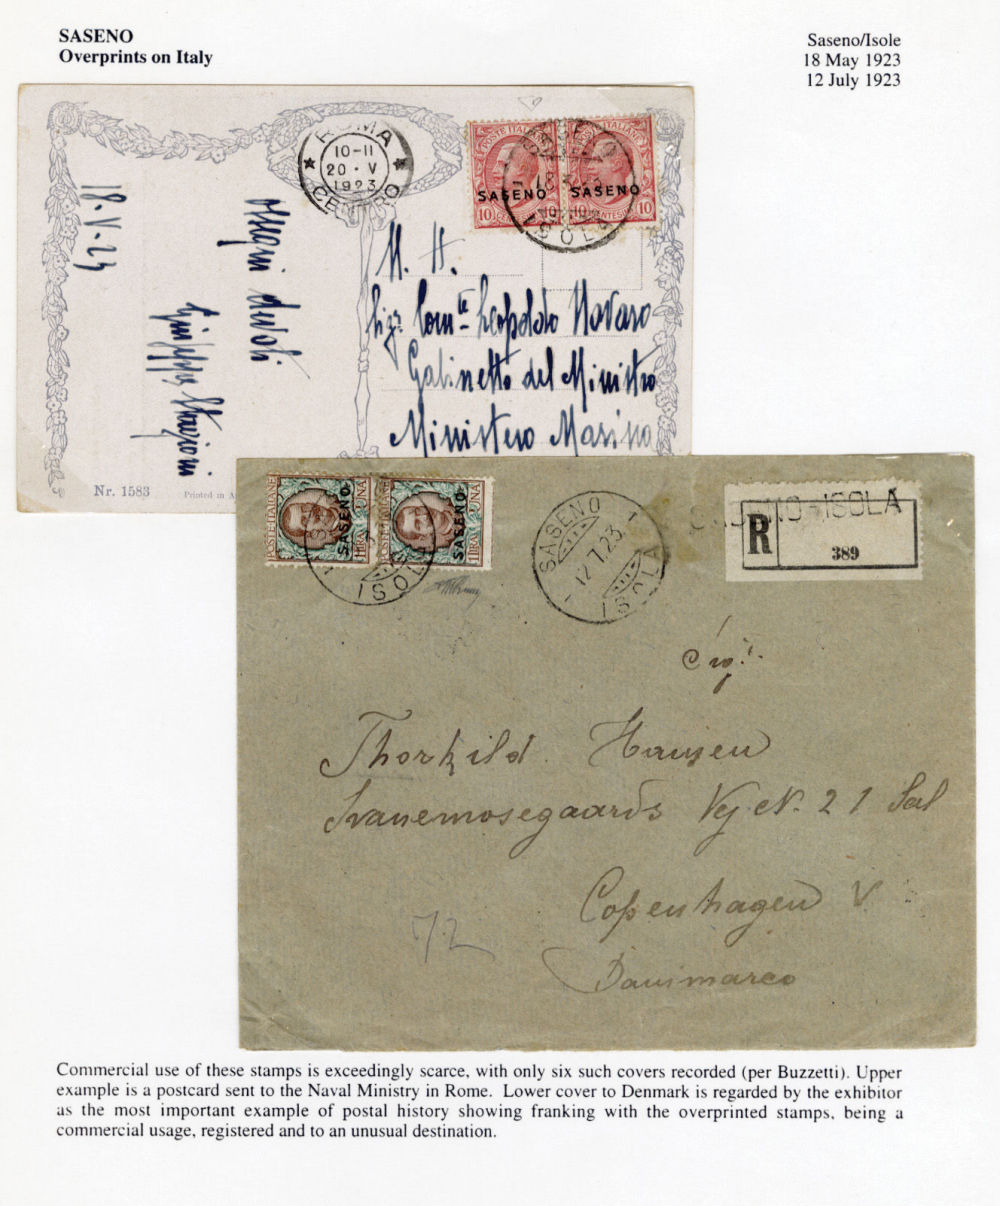 SASENO
Overprints on Italy
Saseno/Isole
18 May 1923
12 July 1923
ROMA
10-11
20 · V
1923
CENTRO
POSTE ITALIANE
SASENO
10 CENTESIMI 10
POSTE ITALIANE
SASENO
10 CENTESIMI 10
ISOLA
18·V·23
Ossequi devoti
Giuseppe
N. H.
Sigr Comte Leopoldo Navaro
Gabinetto del Ministro
Ministero Marina
Nr. 1583
Printed in
POSTE ITALIANE
SASENO
1 LIRA UNA
POSTE ITALIANE
SASENO
1 LIRA UNA
ISOLA
SASENO
12.7.23.
ISOLA
SASENO-ISOLA
R
389
Sigr.
Thorkild Hansen
Svanemosegaards Vej No. 2 1 Sal
Copenhagen V
Danimarca
72
Commercial use of these stamps is exceedingly scarce, with only six such covers recorded (per Buzzetti). Upper
example is a postcard sent to the Naval Ministry in Rome. Lower cover to Denmark is regarded by the exhibitor
as the most important example of postal history showing franking with the overprinted stamps, being a
commercial usage, registered and to an unusual destination.